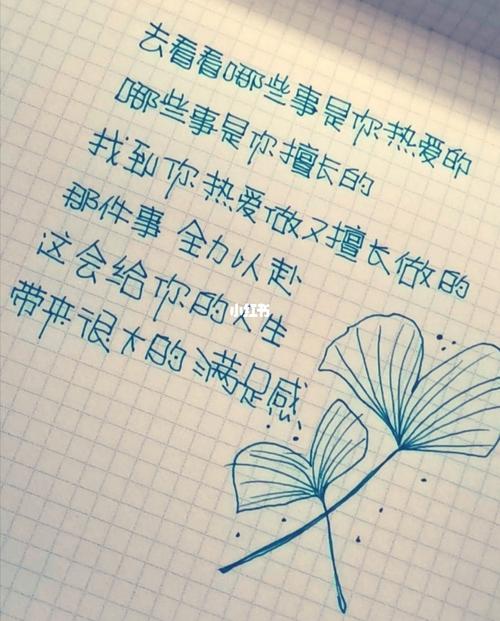 去看看哪些事是你热爱的
哪些事是你擅长的
找到你热爱做又擅长做的
那件事 全力以赴
这会给你的人生
带来很大的满足感
小红书